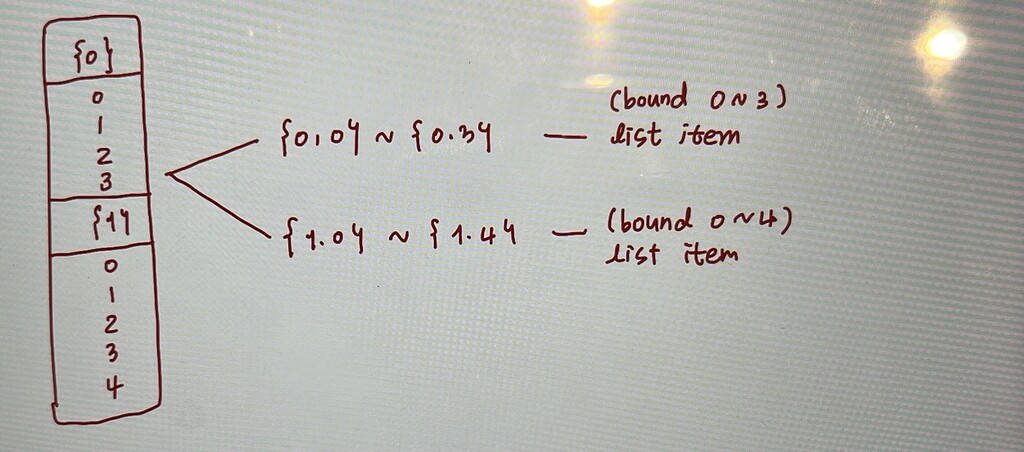 {0}
0
1
2
3
{1}
0
1
2
3
4
{0,0} ~ {0.3} — (bound 0~3)
list item
{1.0} ~ {1.4} — (bound 0~4)
list item